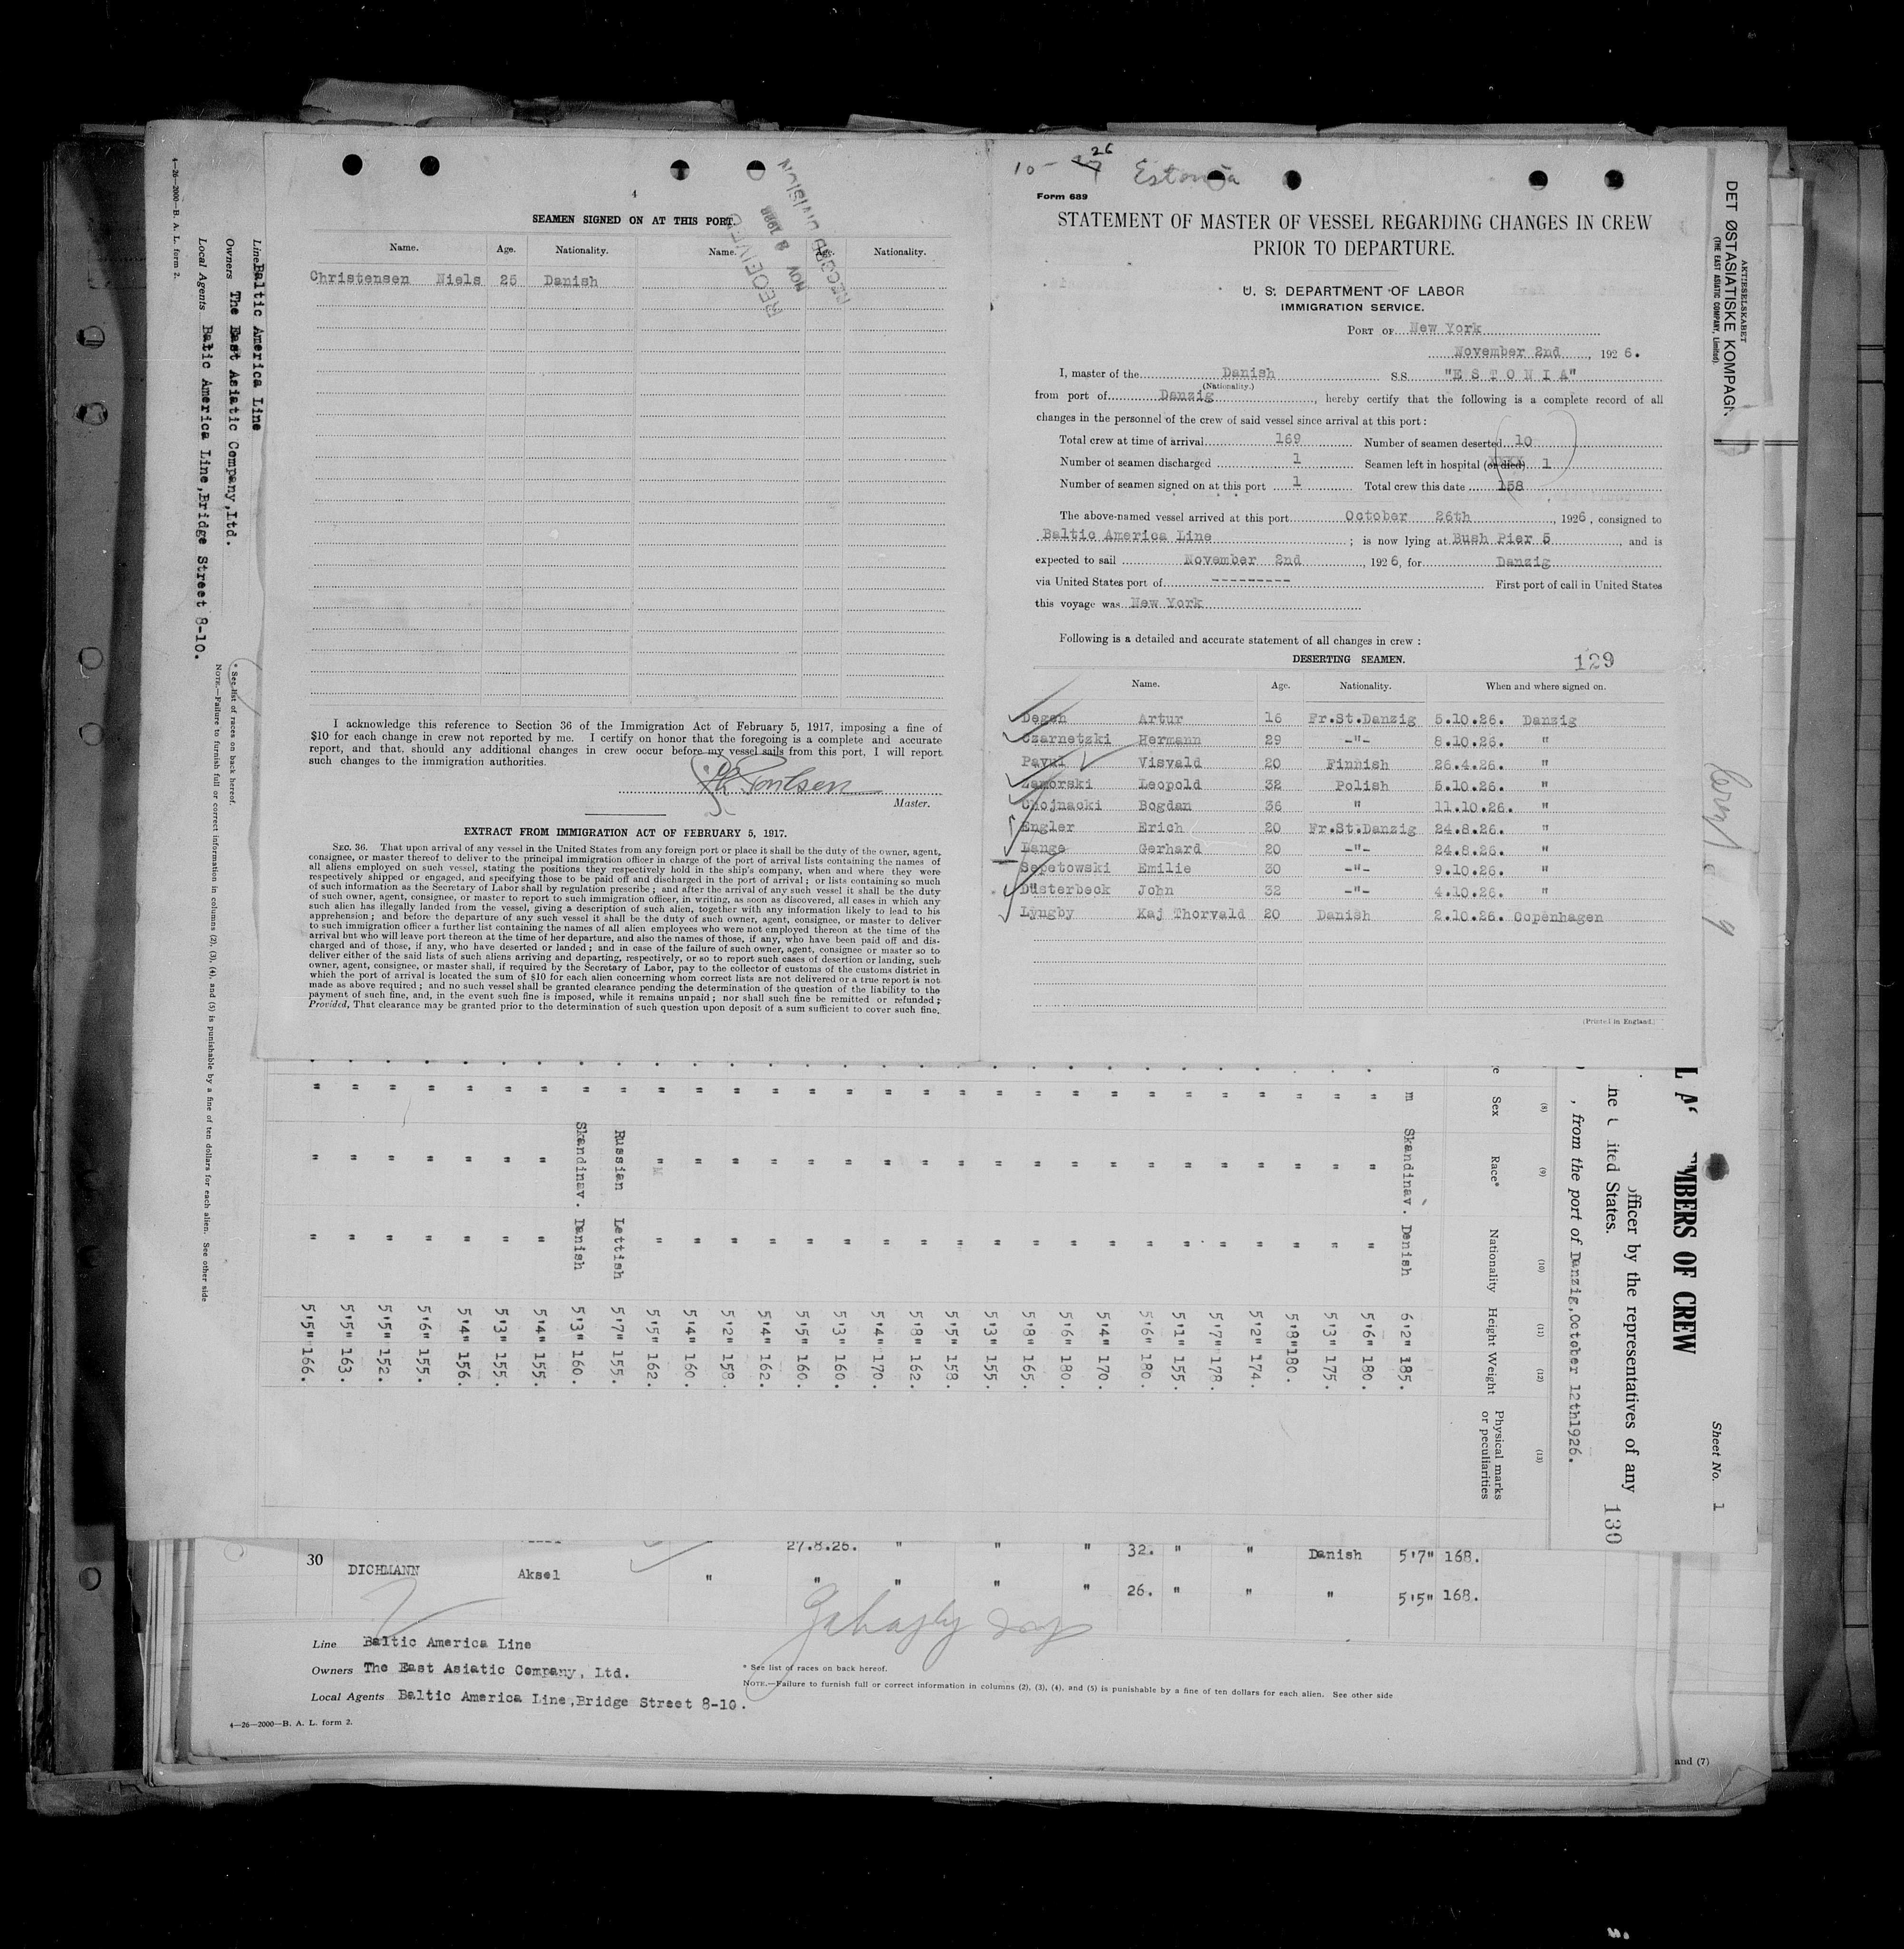 4
SEAMEN SIGNED ON AT THIS PORT.
Name. Age. Nationality. Name. Age. Nationality.
Christensen Niels 25 Danish
RECEIVED
NOV 8 1926
RECORD DIVISION
I acknowledge this reference to Section 36 of the Immigration Act of February 5, 1917, imposing a fine of
$10 for each change in crew not reported by me. I certify on honor that the foregoing is a complete and accurate
report, and that, should any additional changes in crew occur before my vessel sails from this port, I will report
such changes to the immigration authorities.
Master.
EXTRACT FROM IMMIGRATION ACT OF FEBRUARY 5, 1917.
SEC. 36. That upon arrival of any vessel in the United States from any foreign port or place it shall be the duty of the owner, agent,
consignee, or master thereof to deliver to the principal immigration officer in charge of the port of arrival lists containing the names of
all aliens employed on such vessel, stating the positions they respectively hold in the ship's company, when and where they were
respectively shipped or engaged, and specifying those to be paid off and discharged in the port of arrival; or lists containing so much
of such information as the Secretary of Labor shall by regulation prescribe; and after the arrival of any such vessel it shall be the duty
of such owner, agent, consignee, or master to report to such immigration officer, in writing, as soon as discovered, all cases in which any
such alien has illegally landed from the vessel, giving a description of such alien, together with any information likely to lead to his
apprehension; and before the departure of any such vessel it shall be the duty of such owner, agent, consignee, or master to deliver
to such immigration officer a further list containing the names of all alien employees who were not employed thereon at the time of the
arrival but who will leave port thereon at the time of her departure, and also the names of those, if any, who have been paid off and dis-
charged and of those, if any, who have deserted or landed; and in case of the failure of such owner, agent, consignee or master so to
deliver either of the said lists of such aliens arriving and departing, respectively, or so to report such cases of desertion or landing, such
owner, agent, consignee, or master shall, if required by the Secretary of Labor, pay to the collector of customs of the customs district in
which the port of arrival is located the sum of $10 for each alien concerning whom correct lists are not delivered or a true report is not
made as above required; and no such vessel shall be granted clearance pending the determination of the question of the liability to the
payment of such fine, and, in the event such fine is imposed, while it remains unpaid; nor shall such fine be remitted or refunded;
Provided, That clearance may be granted prior to the determination of such question upon deposit of a sum sufficient to cover such fine.
10-26 Estonia
Form 689
STATEMENT OF MASTER OF VESSEL REGARDING CHANGES IN CREW
PRIOR TO DEPARTURE.
U. S. DEPARTMENT OF LABOR
IMMIGRATION SERVICE.
PORT OF New York
November 2nd, 1926.
I, master of the Danish S.S. "E S T O N I A"
(Nationality.)
from port of Danzig, hereby certify that the following is a complete record of all
changes in the personnel of the crew of said vessel since arrival at this port:
Total crew at time of arrival 169 Number of seamen deserted 10
Number of seamen discharged 1 Seamen left in hospital (or died) 1
Number of seamen signed on at this port 1 Total crew this date 158
The above-named vessel arrived at this port October 26th, 1926, consigned to
Baltic America Line; is now lying at Bush Pier 5, and is
expected to sail November 2nd, 1926, for Danzig
via United States port of --------- First port of call in United States
this voyage was New York
Following is a detailed and accurate statement of all changes in crew:
DESERTING SEAMEN. 129
Name. Age. Nationality. When and where signed on.
Degen Artur 16 Fr.St.Danzig 5.10.26. Danzig
Czarnetzki Hermann 29 -"- 8.10.26. "
Pavul Visvald 20 Finnish 26.4.26. "
Zamorski Leopold 32 Polish 5.10.26. "
Chojnacki Bogdan 36 " 11.10.26. "
Engler Erich 20 Fr.St.Danzig 24.8.26. "
Lange Gerhard 20 -"- 24.8.26. "
Sepetowski Emilie 30 -"- 9.10.26. "
Düsterbeck John 32 -"- 4.10.26. "
Lyngby Kaj Thorvald 20 Danish 2.10.26. Copenhagen
(Printed in England.)
AKTIESELSKABET
DET ØSTASIATISKE KOMPAGN
(THE EAST ASIATIC COMPANY, Limited)
MBERS OF CREW
Sheet No. 1
officer by the representatives of any
ited States.
130
, from the port of Danzig, October 12th1926.
(8) (9) (10) (11) (12) (13)
Sex Race* Nationality Height Weight Physical marks or peculiarities
m Skandinav. Danish 6'2" 185.
" " " 5'6" 180.
" " " 5'3" 175.
" " " 5'8" 180.
" " " 5'2" 174.
" " " 5'7" 178.
" " " 5'1" 155.
" " " 5'6" 180.
" " " 5'4" 170.
" " " 5'6" 180.
" " " 5'8" 165.
" " " 5'3" 155.
" " " 5'5" 158.
" " " 5'8" 162.
" " " 5'4" 170.
" " " 5'3" 160.
" " " 5'5" 160.
" " " 5'4" 162.
" " " 5'2" 158.
" " " 5'4" 160.
" " " 5'5" 162.
" Russian Lettish 5'7" 155.
" Skandinav. Danish 5'3" 160.
" " " 5'4" 155.
" " " 5'3" 155.
" " " 5'4" 156.
" " " 5'6" 155.
" " " 5'5" 152.
" " " 5'5" 163.
" " " 5'5" 166.
Line Baltic America Line
Owners The East Asiatic Company, Ltd.
Local Agents Baltic America Line, Bridge Street 8-10.
* See list of races on back hereof.
NOTE.—Failure to furnish full or correct information in columns (2), (3), (4), and (5) is punishable by a fine of ten dollars for each alien. See other side
4—26—2000—B. A. L. form 2.
27.8.26. " " " 32. " " Danish 5'7" 168.
30 DICHMANN Aksel " " " " " 26. " " " 5'5" 168.
Line Baltic America Line
Owners The East Asiatic Company, Ltd.
Local Agents Baltic America Line, Bridge Street 8-10.
* See list of races on back hereof.
NOTE.—Failure to furnish full or correct information in columns (2), (3), (4), and (5) is punishable by a fine of ten dollars for each alien. See other side
4—26—2000—B. A. L. form 2.
and (7)